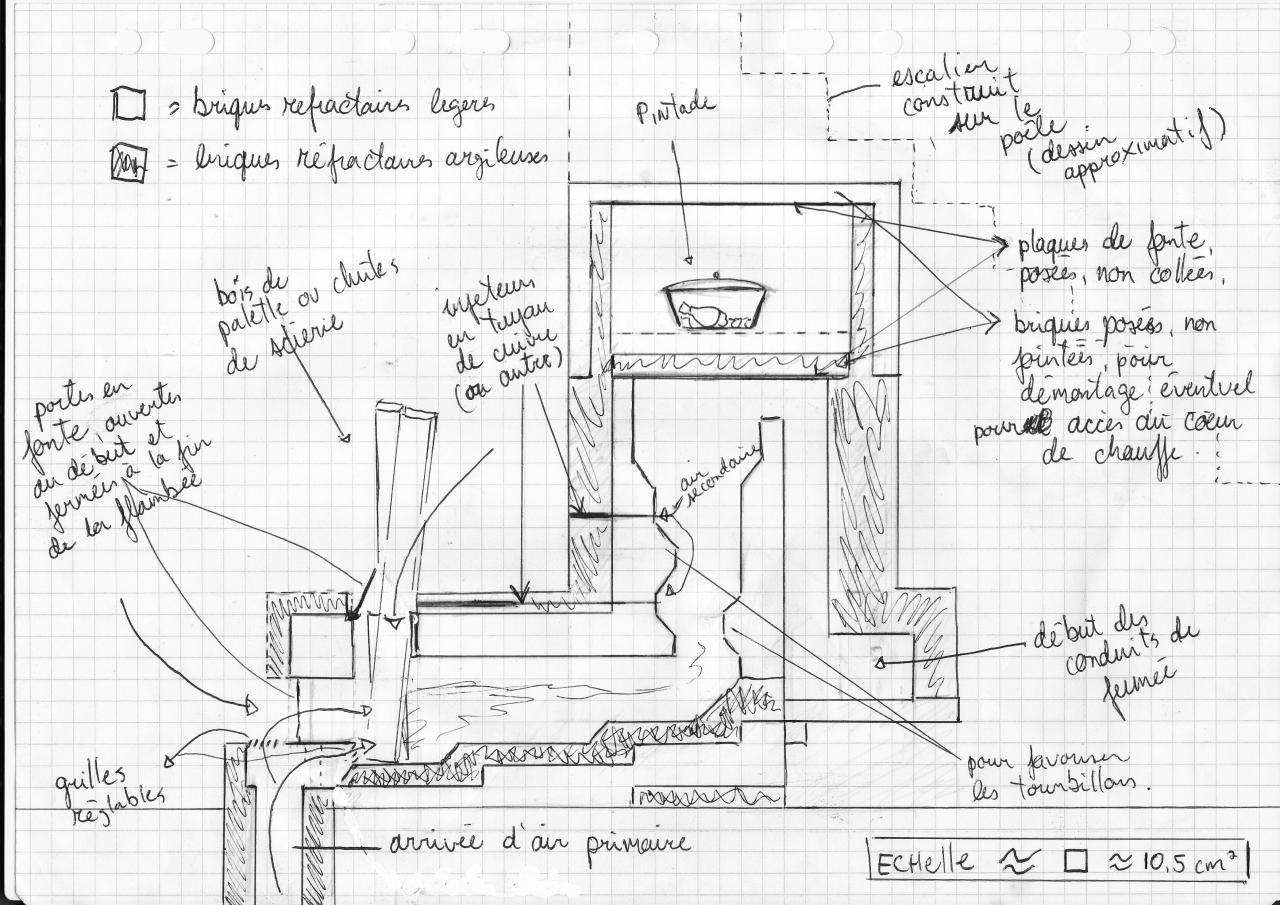 = briques refractaires legeres
= briques réfractaires argileuses
Pintade
escalier
construit
sur le
poêle
(dessin
approximatif)
bois de
palette ou chutes
de scierie
injecteurs
en tuyau
de cuivre
(ou autre)
plaques de fonte,
posées, non collées,
briques posées, non
jointées, pour
démontage éventuel
pour accès du cœur
de chauffe.
portes en
fonte, ouvertes
au début et
fermées à la fin
de la flambée
air
secondaire
début des
conduits de
fumée
pour favoriser
les tourbillons.
grilles
réglables
arrivée d'air primaire
ECHELLE ≈ □ ≈ 10,5 cm²